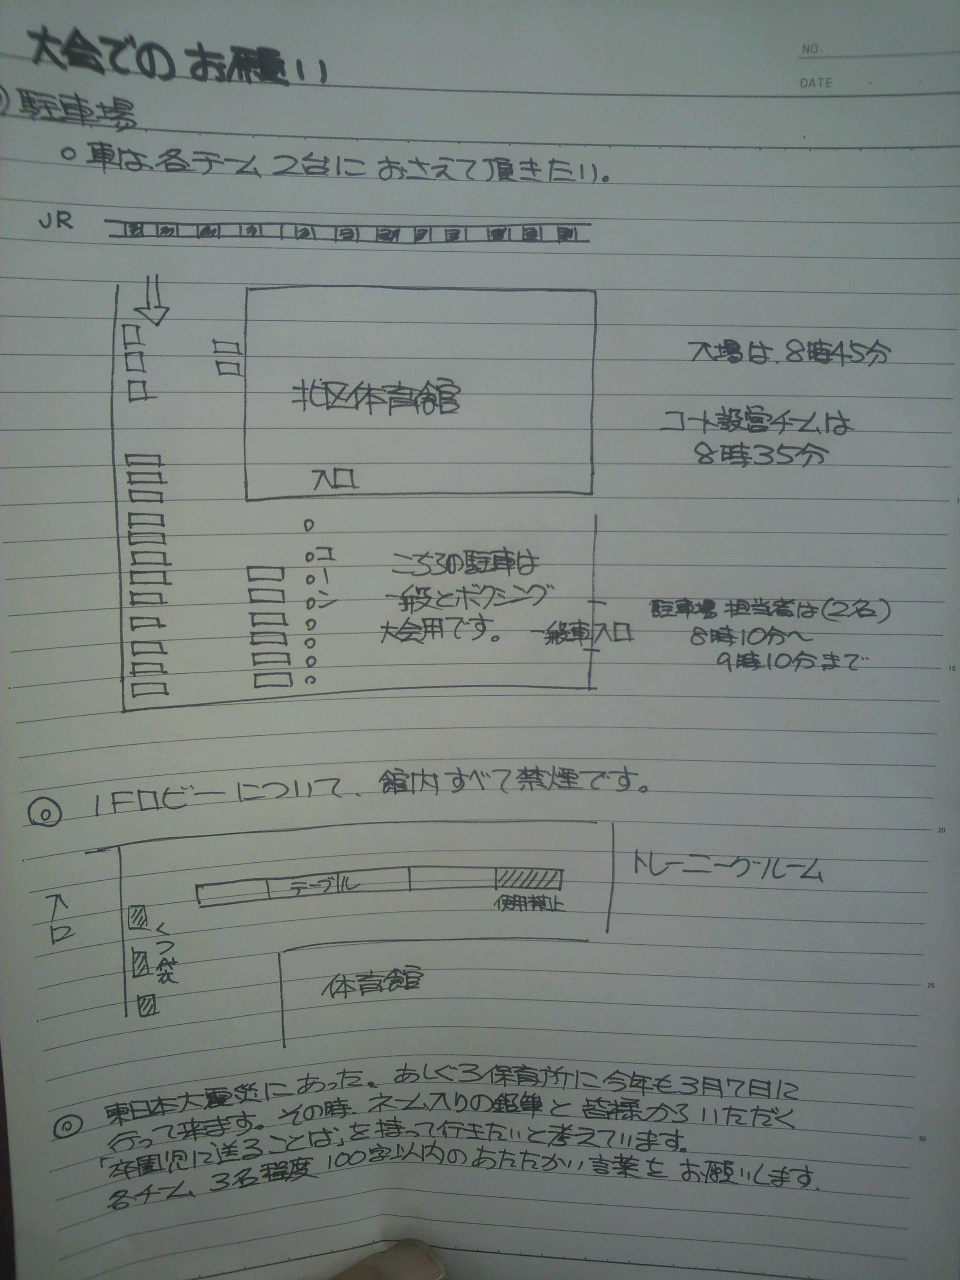 大会でのお願い
NO.
DATE
◎駐車場
○車は、各チーム 2台に おさえて頂きたい。
JR
入場は、8時45分
北区体育館
コート設営チームは
8時35分
入口
コーン
こちらの駐車は
一般とボクシング
大会用です。
一般車入口
駐車場 担当者は(2名)
8時10分〜
9時10分まで
◎ 1Fロビーについて、館内すべて禁煙です。
トレーニングルーム
テーブル
使用禁止
入口
くつ袋
体育館
◎ 東日本大震災にあった。あしぐろ保育所に今年も3月7日に
行って来ます。その時、ネーム入りの鉛筆と皆様からいただく
「卒園児に送ることば」を持って行きたいと考えています。
各チーム、3名程度 100字以内のあたたかい言葉をお願いします。